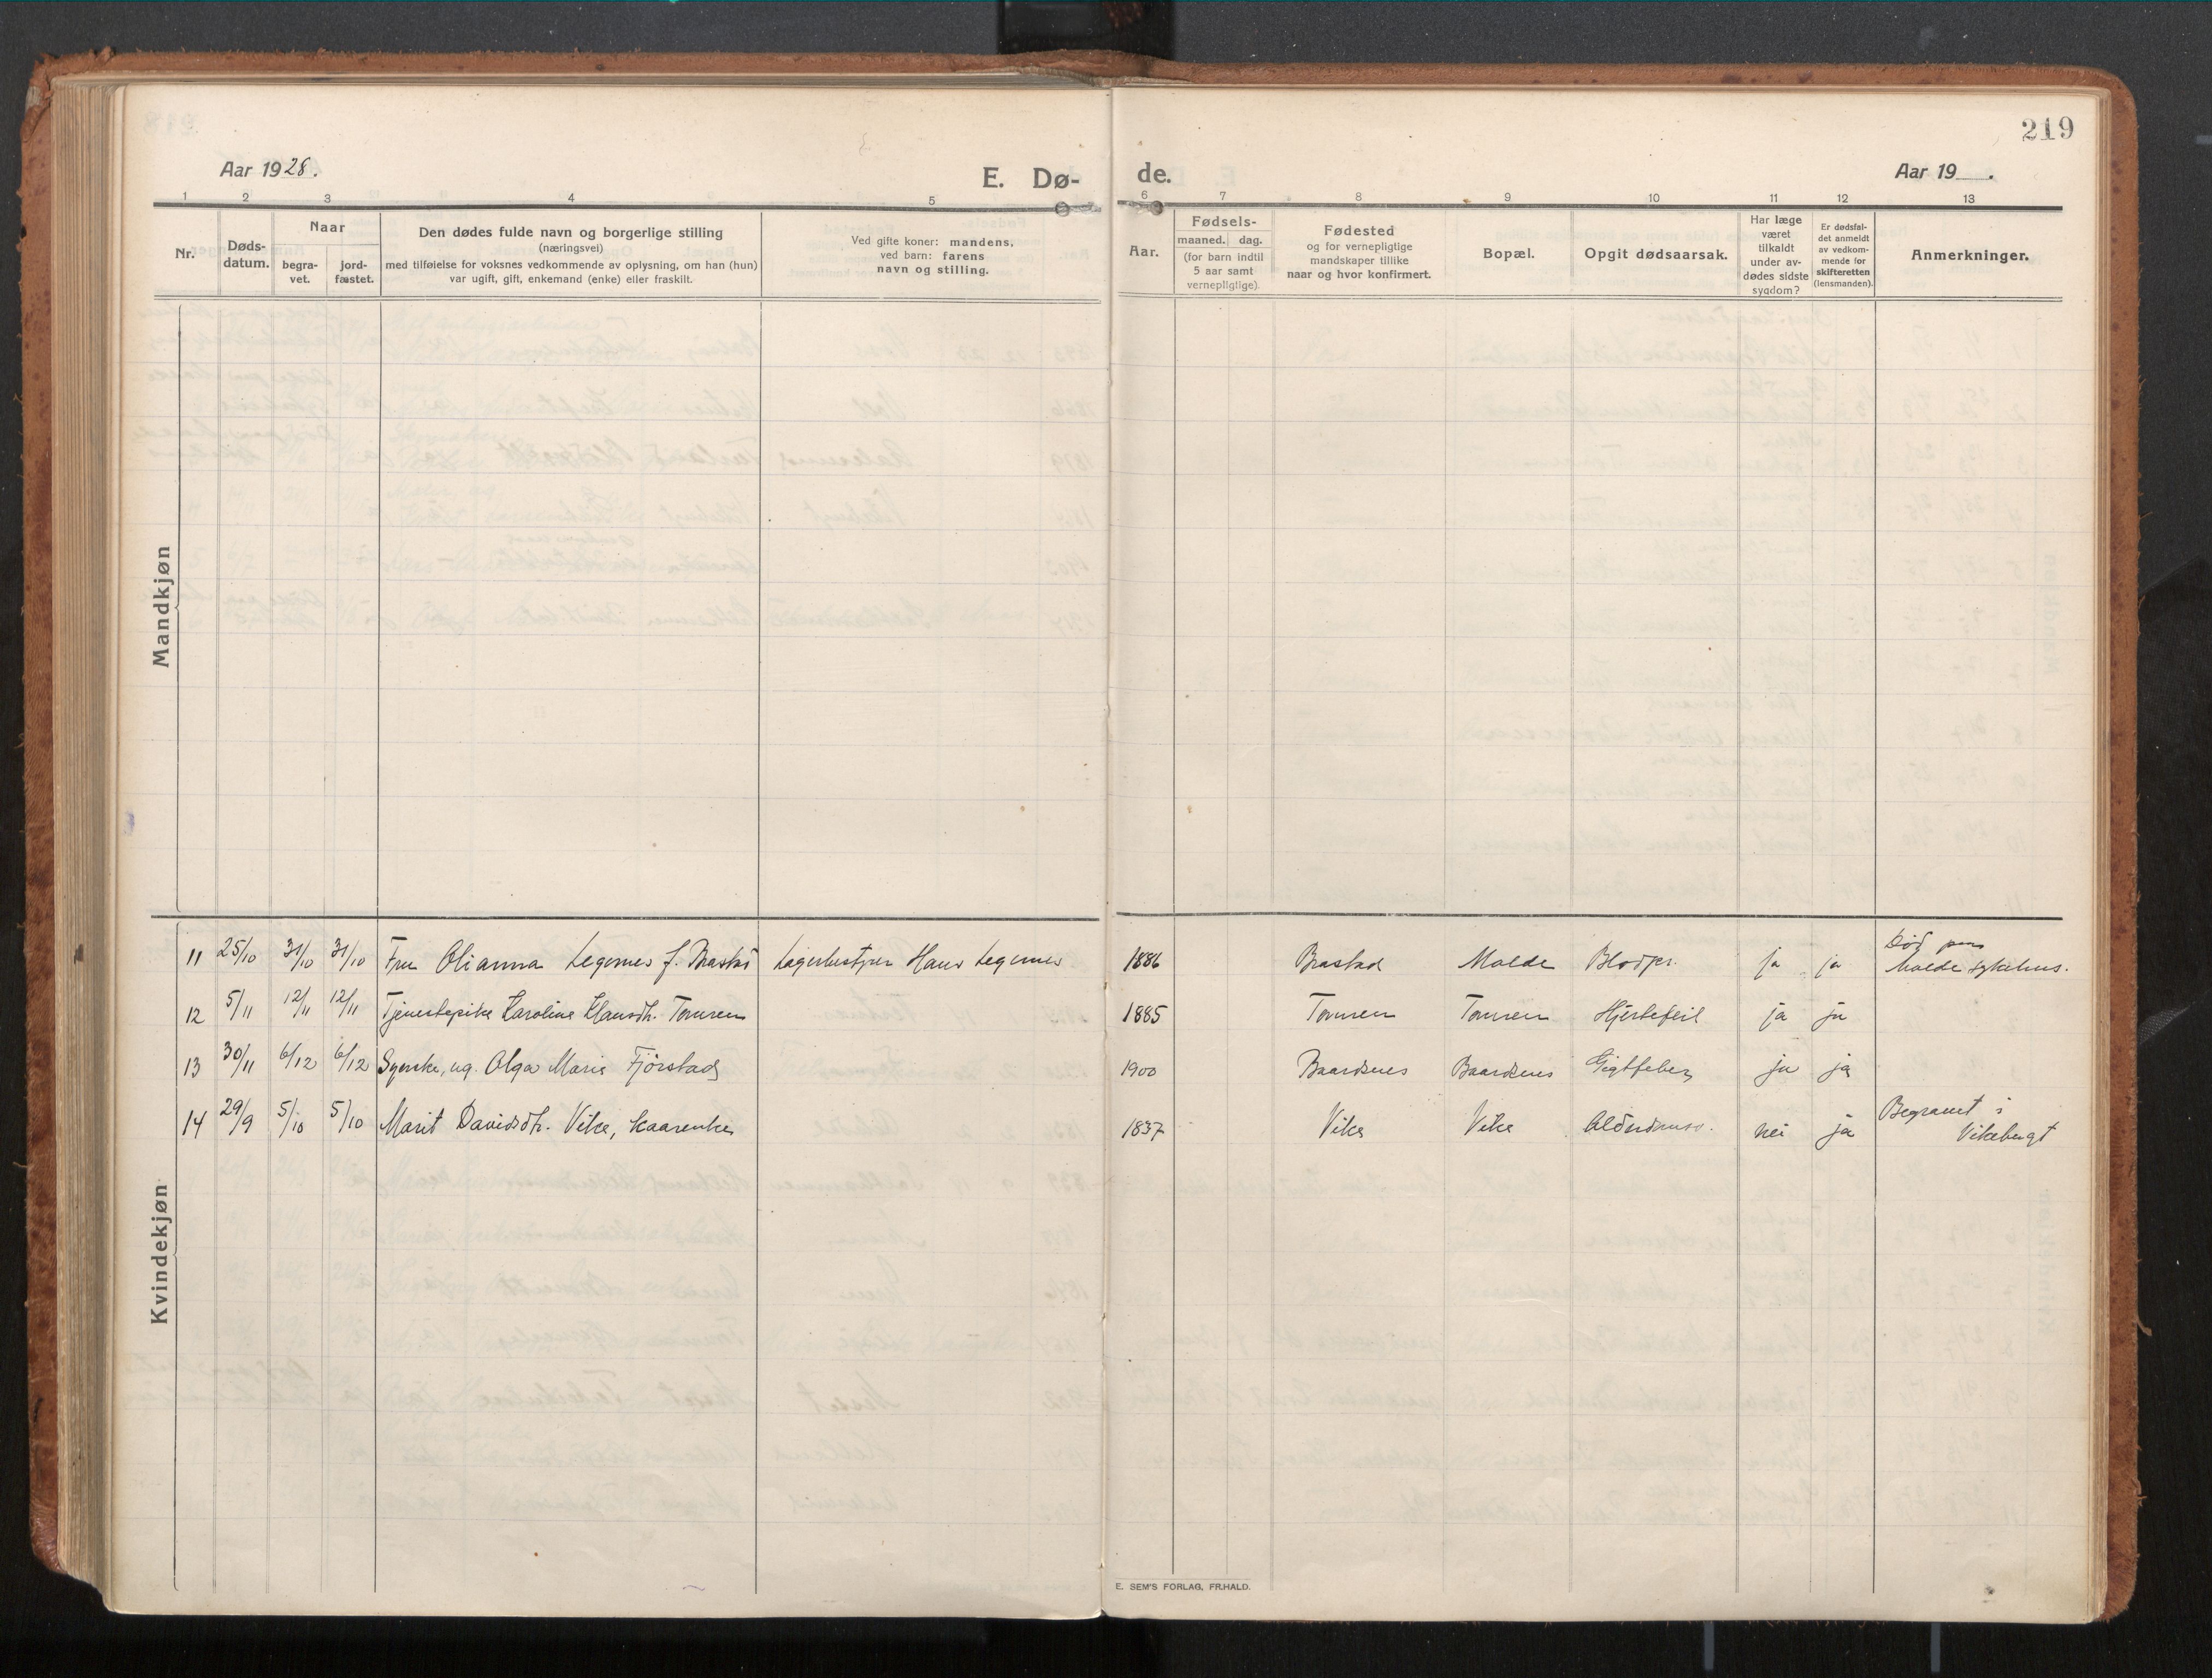 219
Aar 1928.
E. Dø-
de.
Aar 19 .
1 2 3 4 5 6 7 8 9 10 11 12 13
Nr.
Døds-
datum.
Naar
begra-
vet.
jord-
fæstet.
Den dødes fulde navn og borgerlige stilling
(næringsvei)
med tilføielse for voksnes vedkommende av oplysning, om han (hun)
var ugift, gift, enkemand (enke) eller fraskilt.
Ved gifte koner: mandens,
ved barn: farens
navn og stilling.
Aar.
Fødsels-
maaned. dag.
(for barn indtil
5 aar samt
vernepligtige)
Fødested
og for vernepligtige
mandskaper tillike
naar og hvor konfirmert.
Bopæl.
Opgit dødsaarsak.
Har læge
været
tilkaldt
under av-
dødes sidste
sygdom?
Er dødsfal-
det anmeldt
av vedkom-
mende for
skifteretten
(lensmanden).
Anmerkninger.
Mandkjøn
Kvindekjøn
11 25/10 31/10 31/10 Fru Olianna Legernes f. Brastad Lagerbestyrer Hans Legernes 1886 Brastad Molde Blodpr. ja ja Død paa
Molde sykehus.
12 5/11 12/11 12/11 Tjenestepike Karoline Hansdtr. Tomren 1885 Tomren Tomren Hjertefeil ja ja
13 30/11 6/12 6/12 Syerske, ug. Olga Marie Fjørstad 1900 Baardsnes Baardsnes Gigtfeber ja ja
14 29/9 5/10 5/10 Marit Davidsdtr. Vike, kaarenke 1837 Vike Vike Alderdomss. nei ja Begravet i
Vikebugt
E. SEM'S FORLAG, FR.HALD.